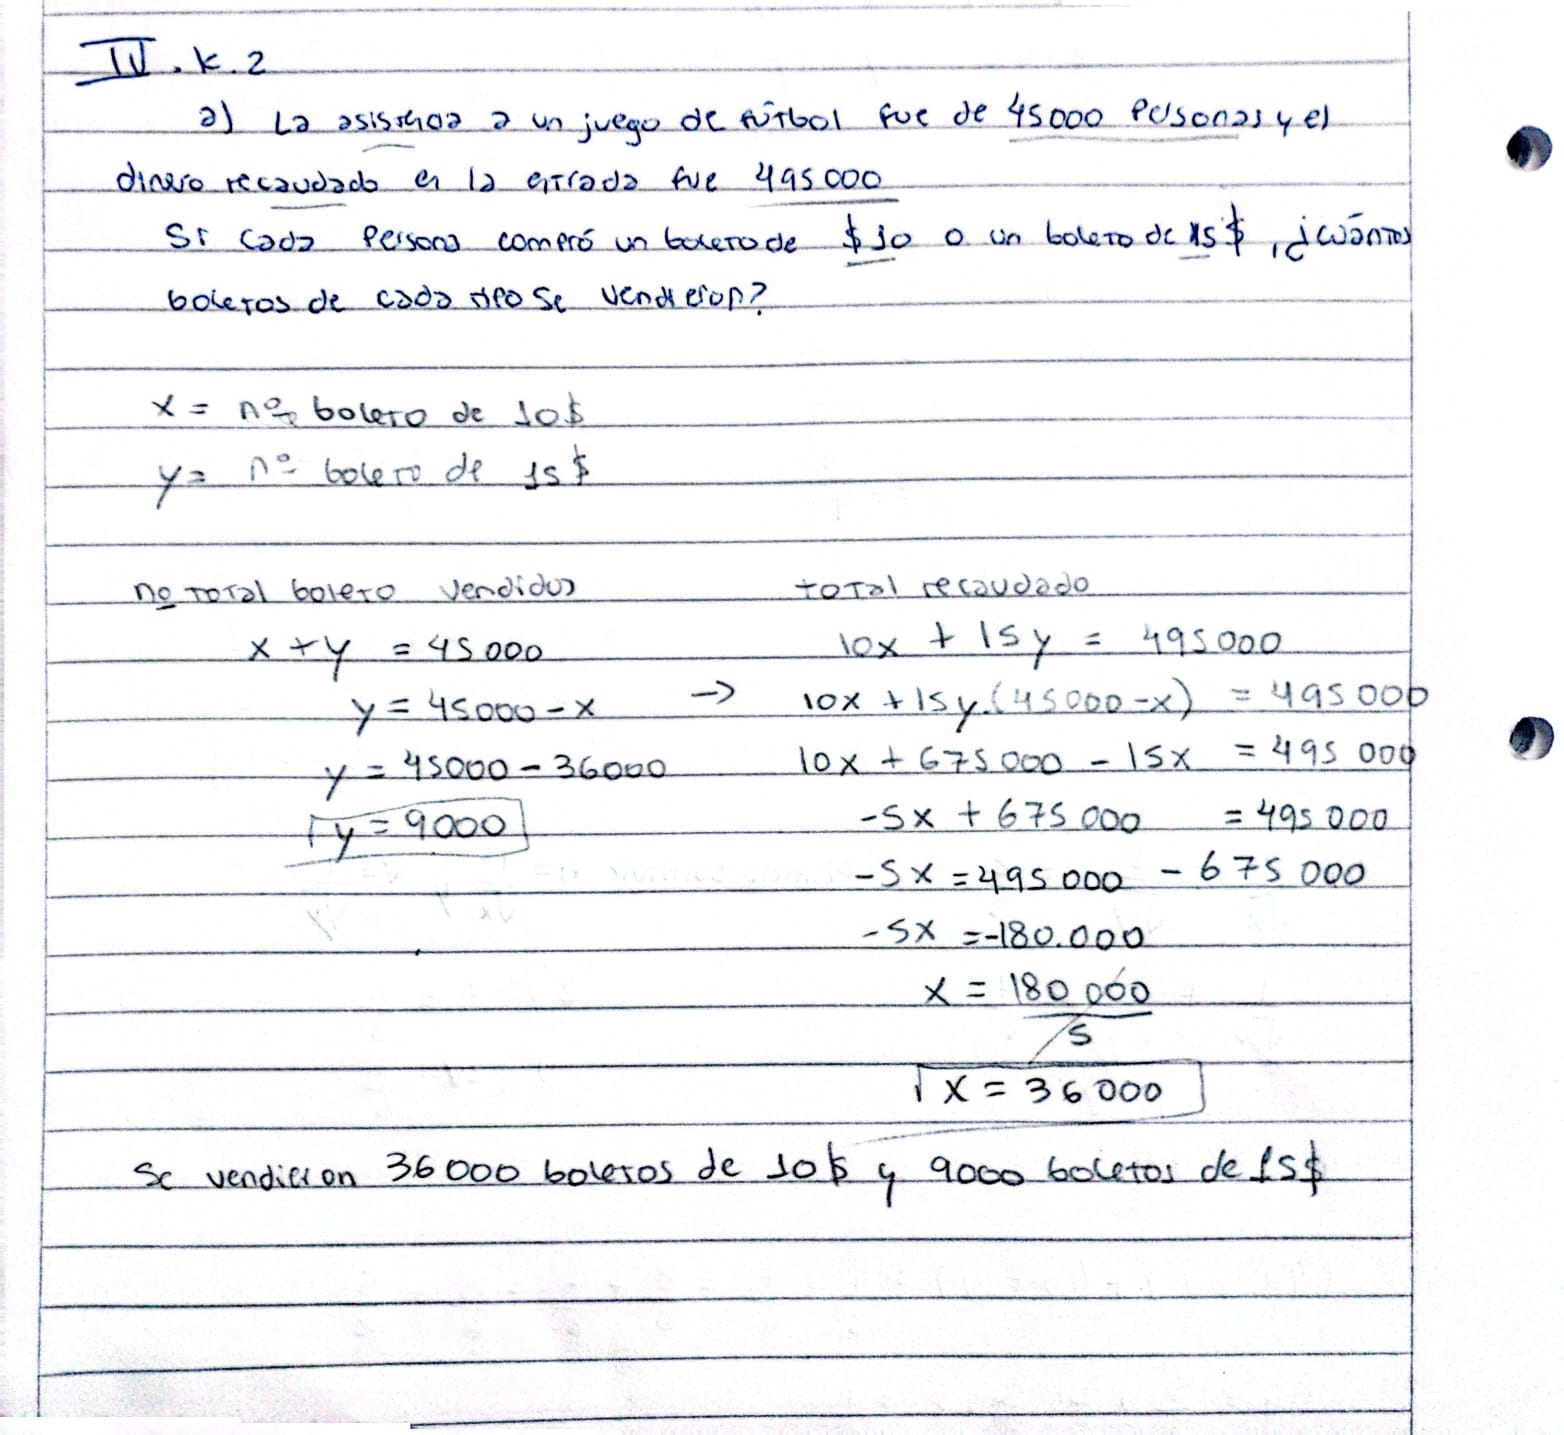 IV. k. 2
a) La asistencia a un juego de fútbol fue de 45000 Personas y el
dinero recaudado en la entrada fue 495 000
Si cada Persona compró un boleto de $ 10 o un boleto de 15 $, ¿cuántos
boletos de cada tipo se vendieron?
x = nº boleto de 10$
y = nº boleto de 15 $
no total boleto vendidos
total recaudado
x + y = 45 000
10x + 15y = 495000
y = 45000 - x -> 10x + 15y.(45000 - x) = 495 000
y = 45000 - 36000
10x + 675 000 - 15x = 495 000
y = 9000
-5x + 675 000 = 495 000
-5x = 495 000 - 675 000
-5x = -180.000
x = 180 000
5
x = 36 000
Se vendieron 36 000 boletos de 10$ y 9000 boletos de 15$